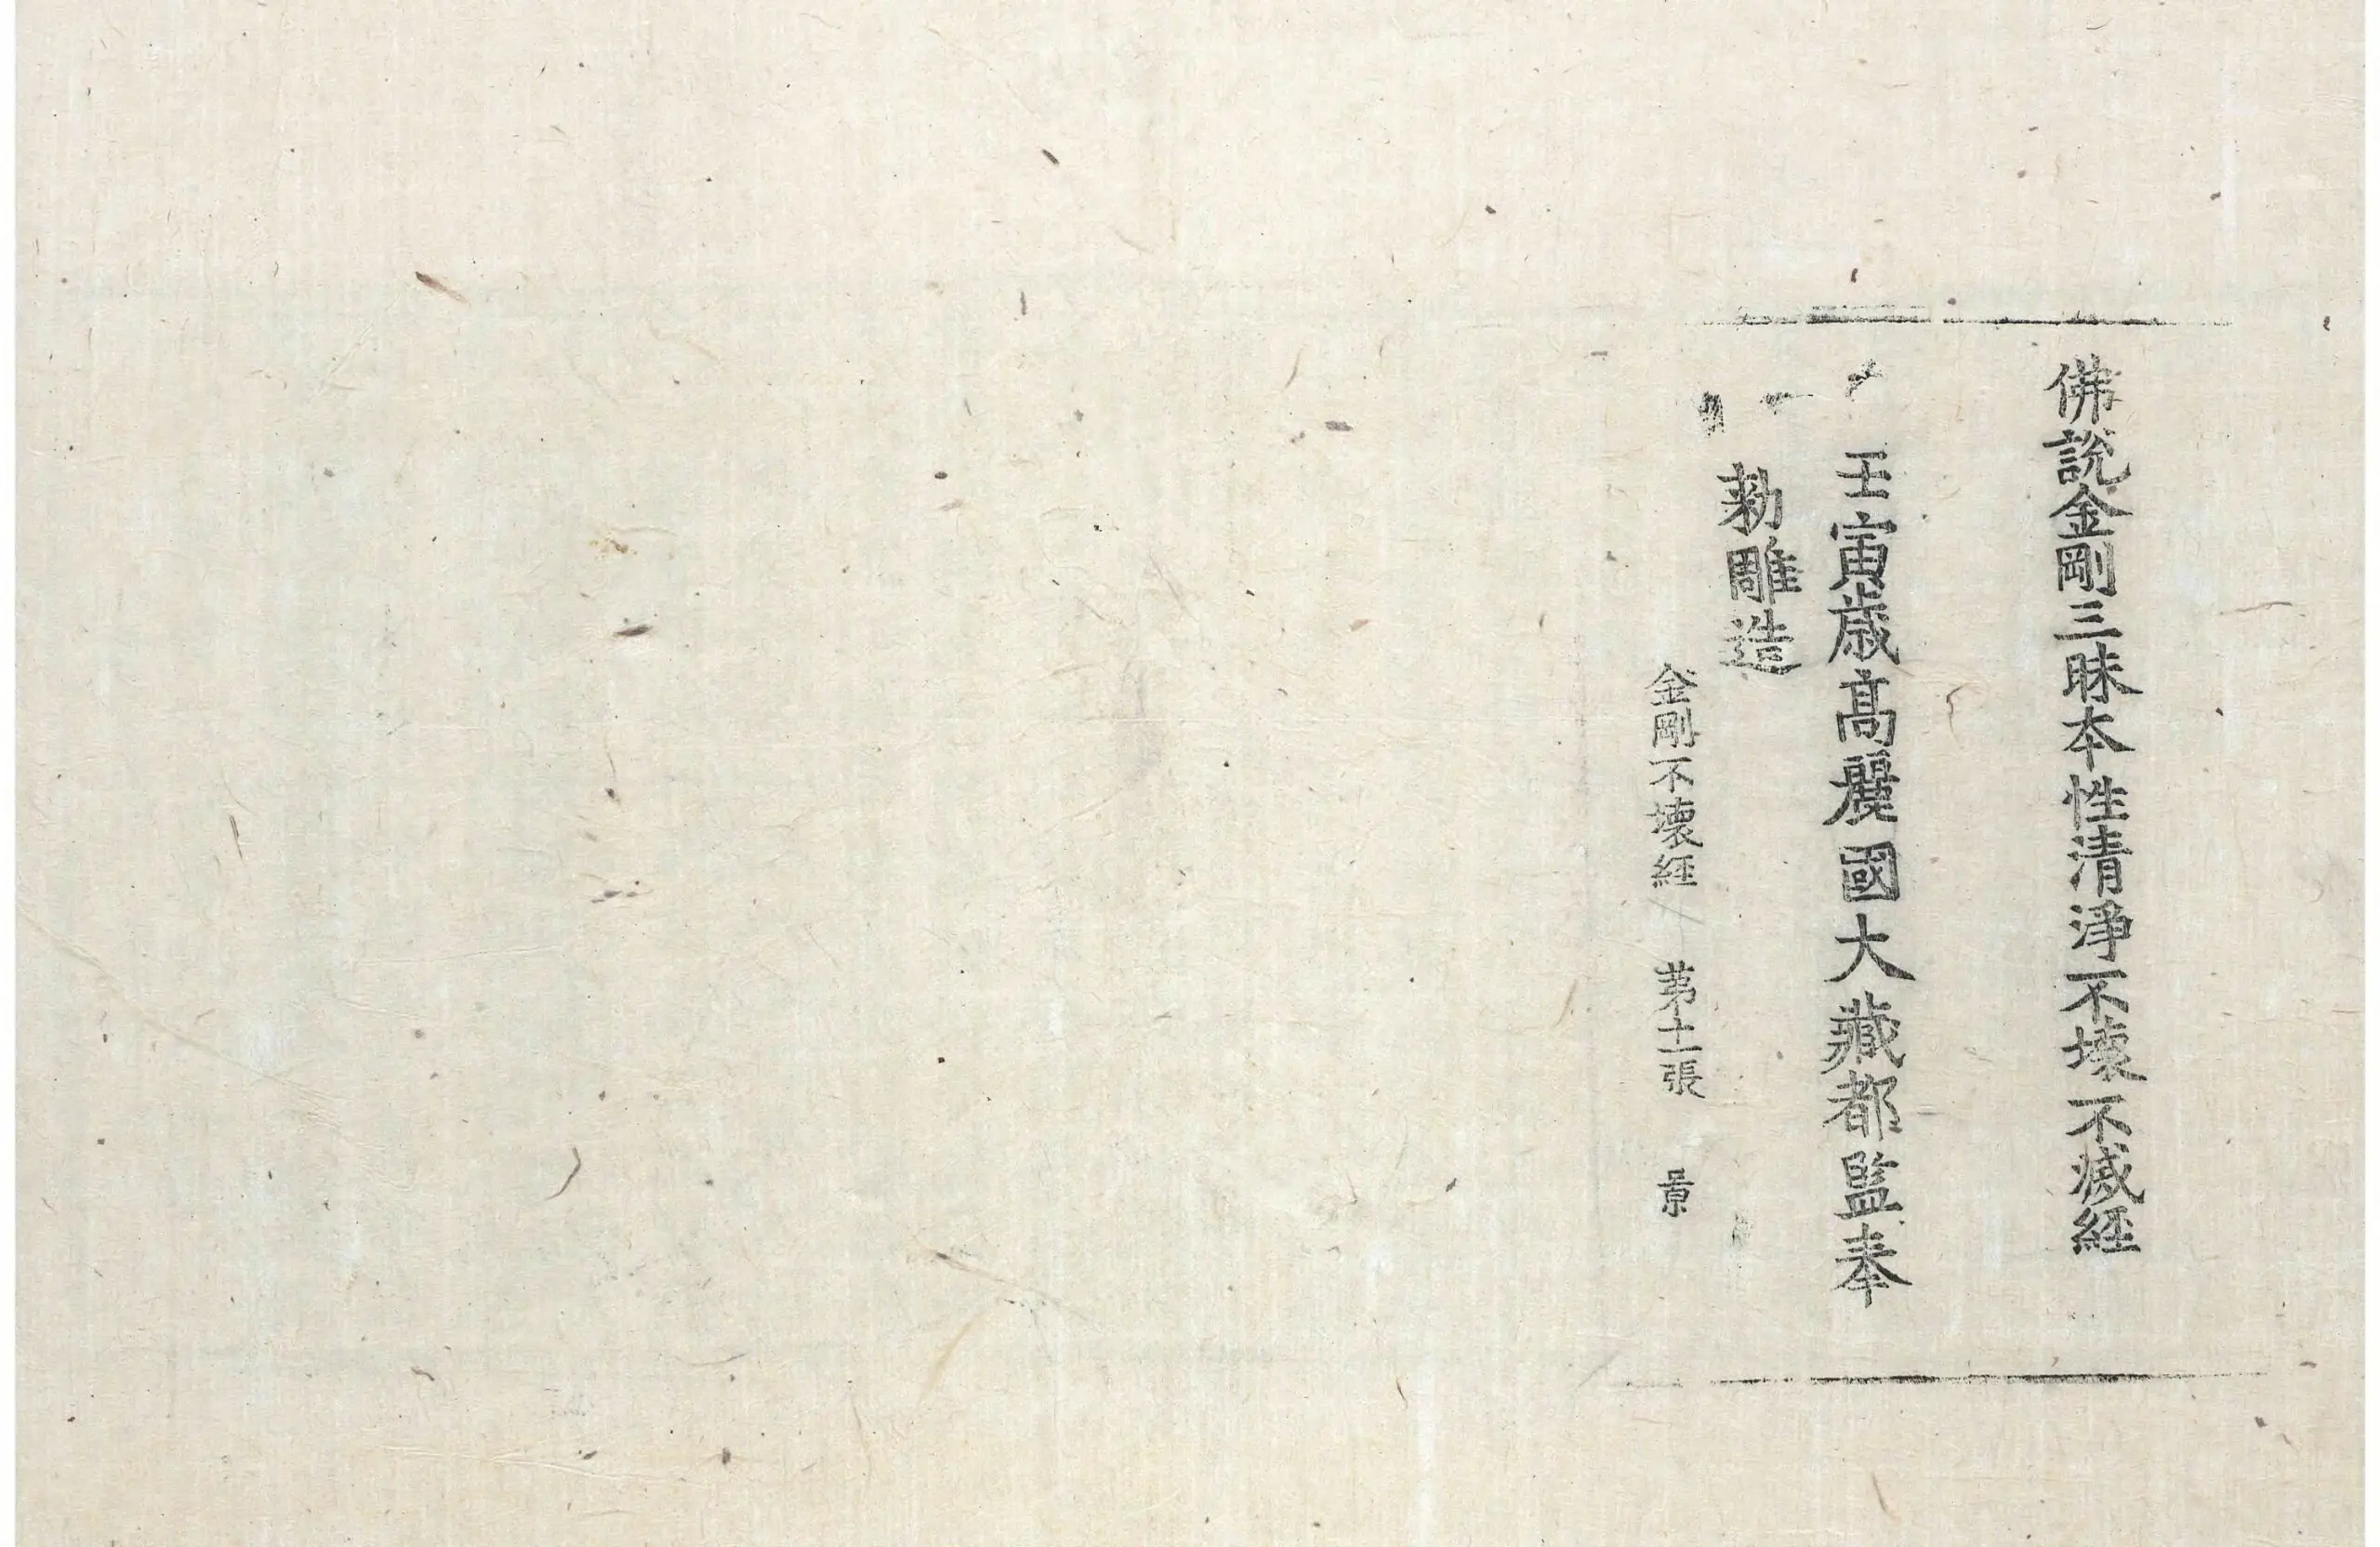 佛說金剛三昧本性清淨不壞不滅經
壬寅歲高麗國大藏都監奉
勑雕造
金剛不壞経 第十二張 景